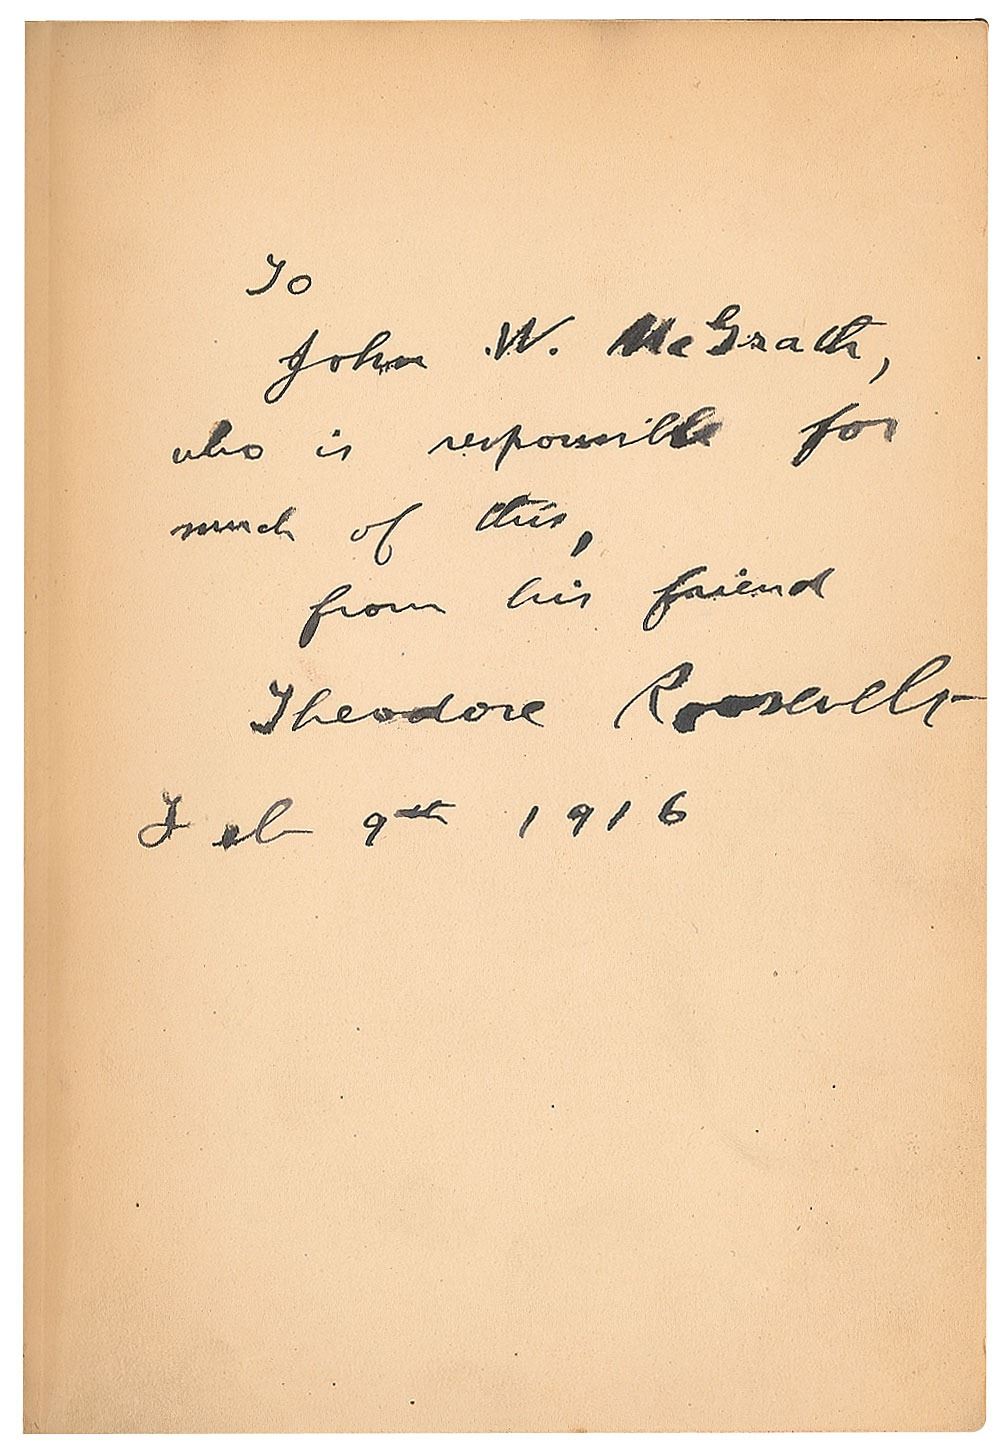 To
John W. McGrath,
who is responsible for
much of this,
from his friend
Theodore Roosevelt
Feb 9th 1916